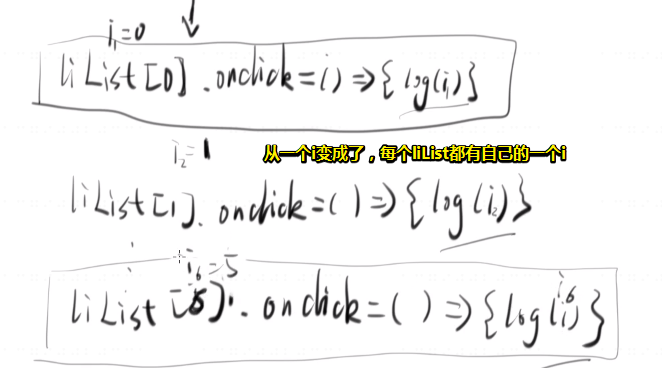 i₁=0
liList[0].onclick=()=>{log(i₁)}
i₂=1
从一个i变成了，每个liList都有自己的一个i
liList[1].onclick=()=>{log(i₂)}
i₆=5
liList[5].onclick=()=>{log(i₆)}